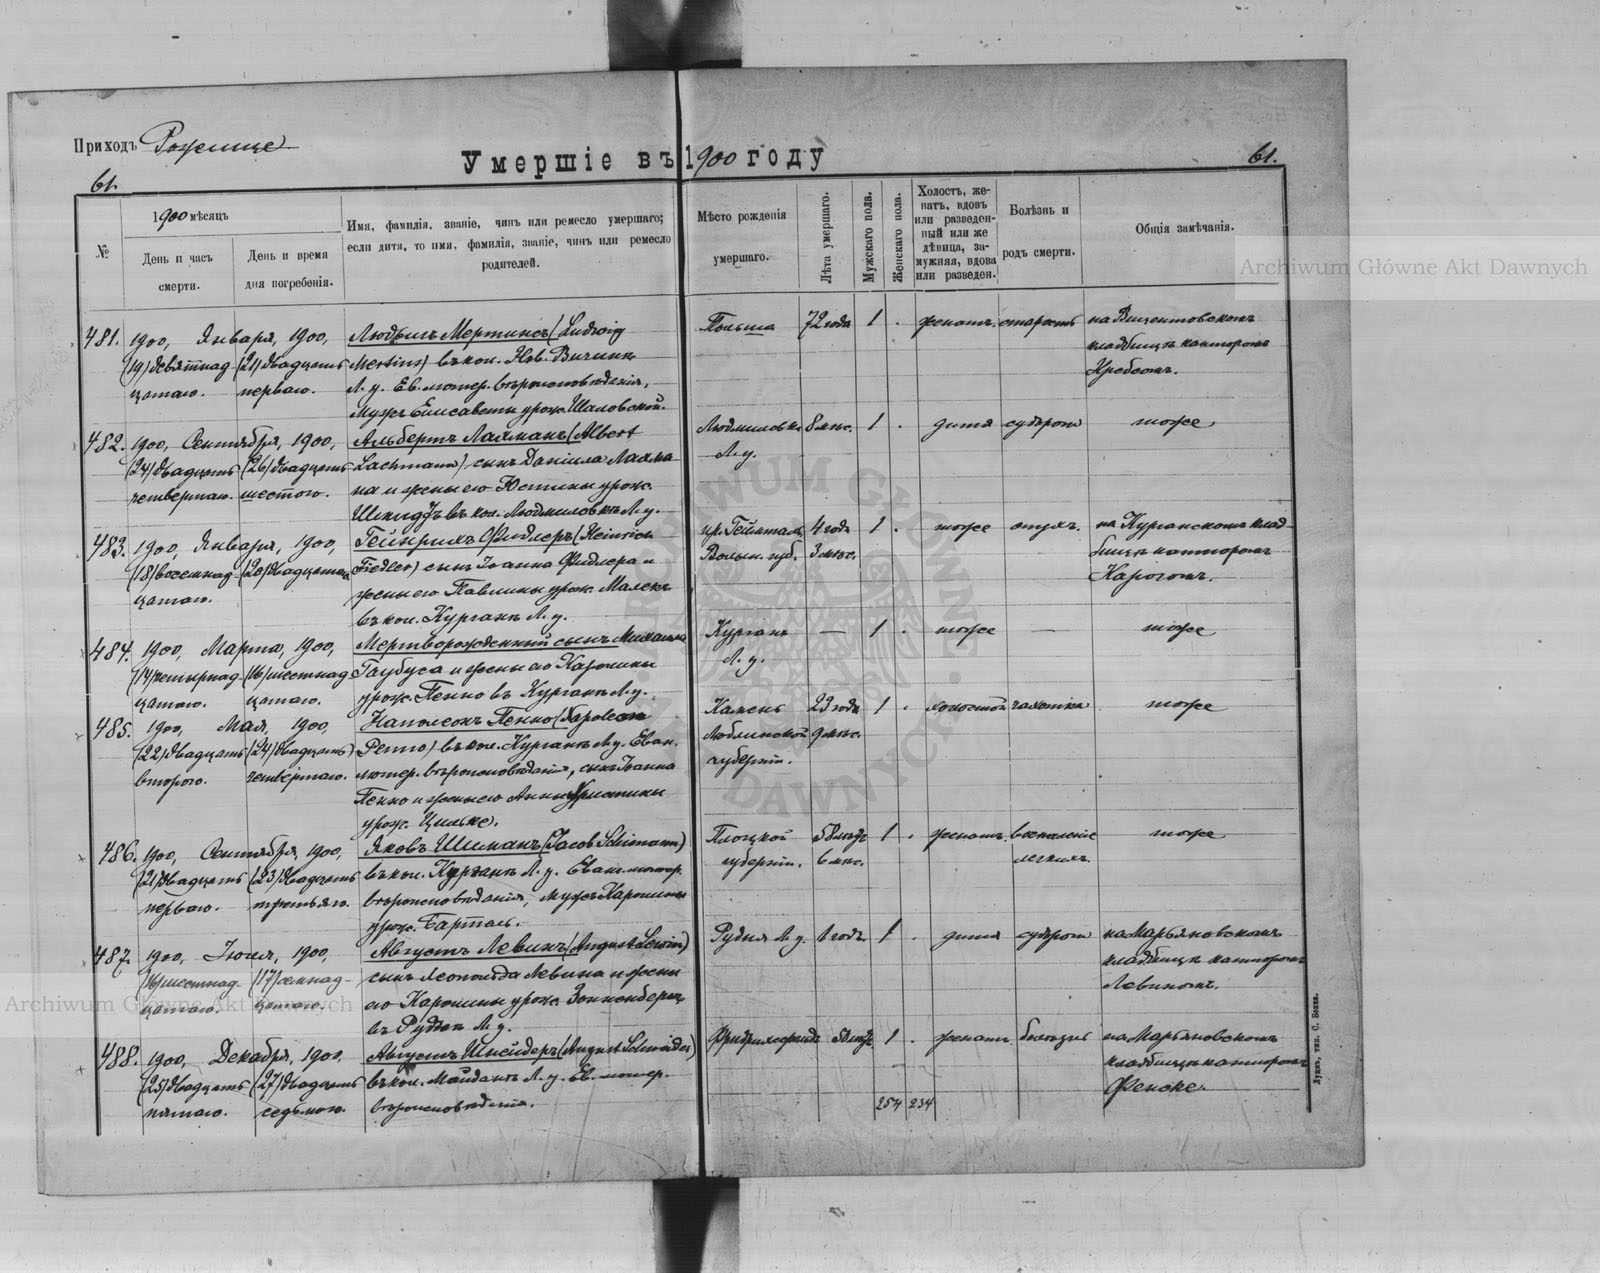 Приходъ Рожище
Умершіе въ 1900 году
61.
61.
№
1900 мѣсяцъ
День и часъ смерти.
День и время дня погребенія.
Имя, фамилія, званіе, чинъ или ремесло умершаго;
если дитя, то имя, фамилія, званіе, чинъ или ремесло
родителей.
Мѣсто рожденія
умершаго.
Лѣта умершаго.
Мужскаго пола.
Женскаго пола.
Холостъ, же-
натъ, вдовъ
или разведен-
ный или же
дѣвица, за-
мужняя, вдова
или разведен.
Болѣзнь и
родъ смерти.
Общія замѣчанія.
481. 1900, Января, 1900, Людвигъ Мертинсъ (Ludwig Польша 72 года 1 . женатъ старость на
(19) девятнад- (21) двадцать Mertins) въ кол. Нов. кладбищѣ канторомъ
цатаго. перваго. Л. у. Ев. лютер. вѣроисповѣданія, Кребсомъ.
Мужъ Елисаветы урож. Шаловской.
482. 1900, Сентября, 1900, Альбертъ Лахманъ (Albert Людмиловка 8 мѣс. 1 . дитя судороги тоже
(24) двадцать (26) двадцать Lachmann) сынъ Даніила Лахма- Л. у.
четвертаго. шестого. на и жены его Юстины урож.
въ кол. Людмиловкѣ Л. у.
483. 1900, Января, 1900, Гейнрихъ Фидлеръ (Heinrich Геймталь 4 года 1 . тоже опухъ. на Курганскомъ клад-
(18) восемнад- (20) двадцатаго Fiedler) сынъ Іоанна Фидлера и Волын. губ. 3 мѣс. бищѣ канторомъ
цатаго. жены его Павлины урож. Малекъ
въ кол. Курганъ Л. у.
484. 1900, Марта, 1900, Мертворожденный сынъ Михаила Курганъ — 1 . тоже — тоже
(14) четырнад- (16) шестнад- Таубуса и жены его Каролины Л. у.
цатаго. цатаго. урож. Пенно въ Курганѣ Л. у.
485. 1900, Мая, 1900, Наполеонъ Пенно (Napoleon Камень 23 года 1 . холостой чахотка тоже
(22) двадцать (24) двадцать Penno) въ кол. Курганъ Л. у. Еван. Люблинской 9 мѣс.
второго. четвертаго. лютер. вѣроисповѣданія, сынъ Іоанна губерніи.
Пенно и жены его Анны Христины
урож. Цильке.
486. 1900, Сентября, 1900, Яковъ Шиманъ (Jacob Schimann) Плоцкой 58 лѣтъ 1 . женатъ воспаленіе тоже
(21) двадцать (23) двадцать въ кол. Курганъ Л. у. Еван. лютер. губерніи. 6 мѣс. легкихъ.
перваго. третьяго. вѣроисповѣданія, мужъ Каролины
урож. Бартель.
487. 1900, Іюля, 1900, Августъ Левинъ (August Lewin) Рудня Л. у. 1 годъ 1 . дитя судороги на Марьяновскомъ
(16) шестнад- (17) семнад- сынъ Леопольда Левина и жены кладбищѣ канторомъ
цатаго. цатаго. его Каролины урож. Зонненбергъ Левинымъ.
въ Л. у.
488. 1900, Декабря, 1900, Августъ Шнейдеръ (August Schneider) 1 . женатъ на Марьяновскомъ
(25) двадцать (27) двадцать въ кол. Майданъ Л. у. Ев. лютер. кладбищѣ канторомъ
пятаго. седьмого. вѣроисповѣданія. Фенске.
254 234
Луцкъ, тип. С. Бокха.
Archiwum Główne Akt Dawnych
Archiwum Główne Akt Dawnych
ARCHIWUM GŁÓWNE AKT DAWNYCH